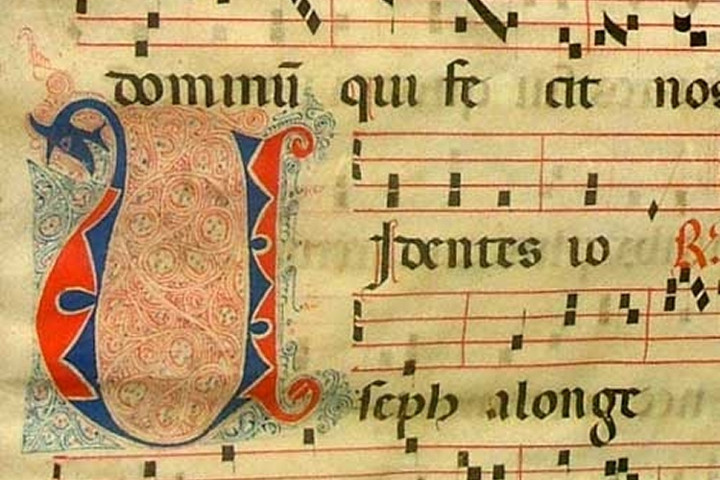 dominū qui fe cit nos
VIdentes io R
seph a longe